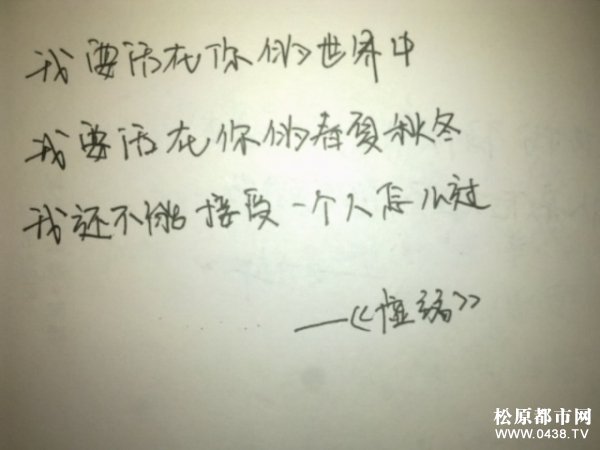 我要活在你的世界中
我要活在你的春夏秋冬
我还不能接受一个人怎么过
——《
》
松原都市网
WWW.0438.TV